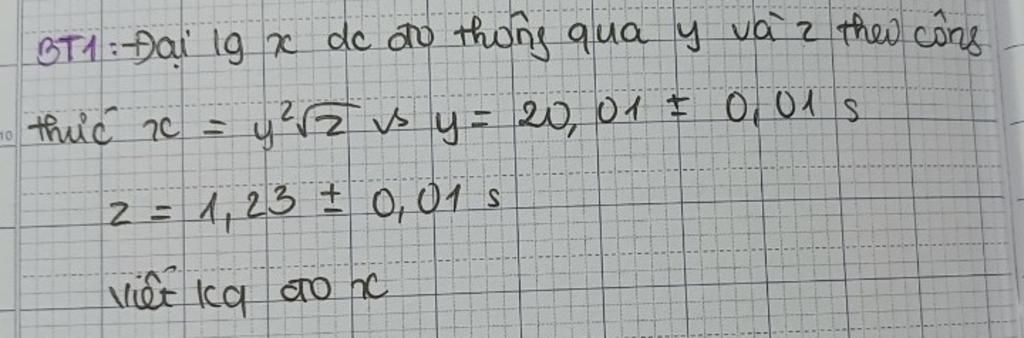 BT1: Đại lg x dc đo thông qua y và z theo công
thức x = y²√z vs y = 20,01 ± 0,01 s
z = 1,23 ± 0,01 s
Viết kq đo x